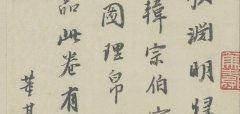 淵明
韓宗伯
圖理帛
品此卷有
董其